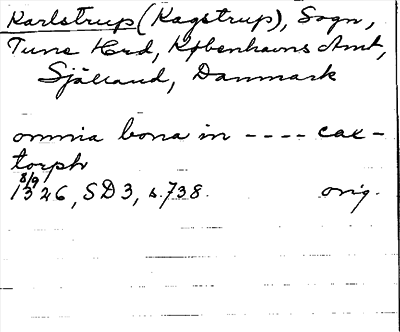 Karlstrup (Kagstrup), Sogn,
Tune Hrd, Københavns Amt,
Sjælland, Danmark
omnia bona in ---- cax-
torph
8/9
1326, SD3, s.738. orig.